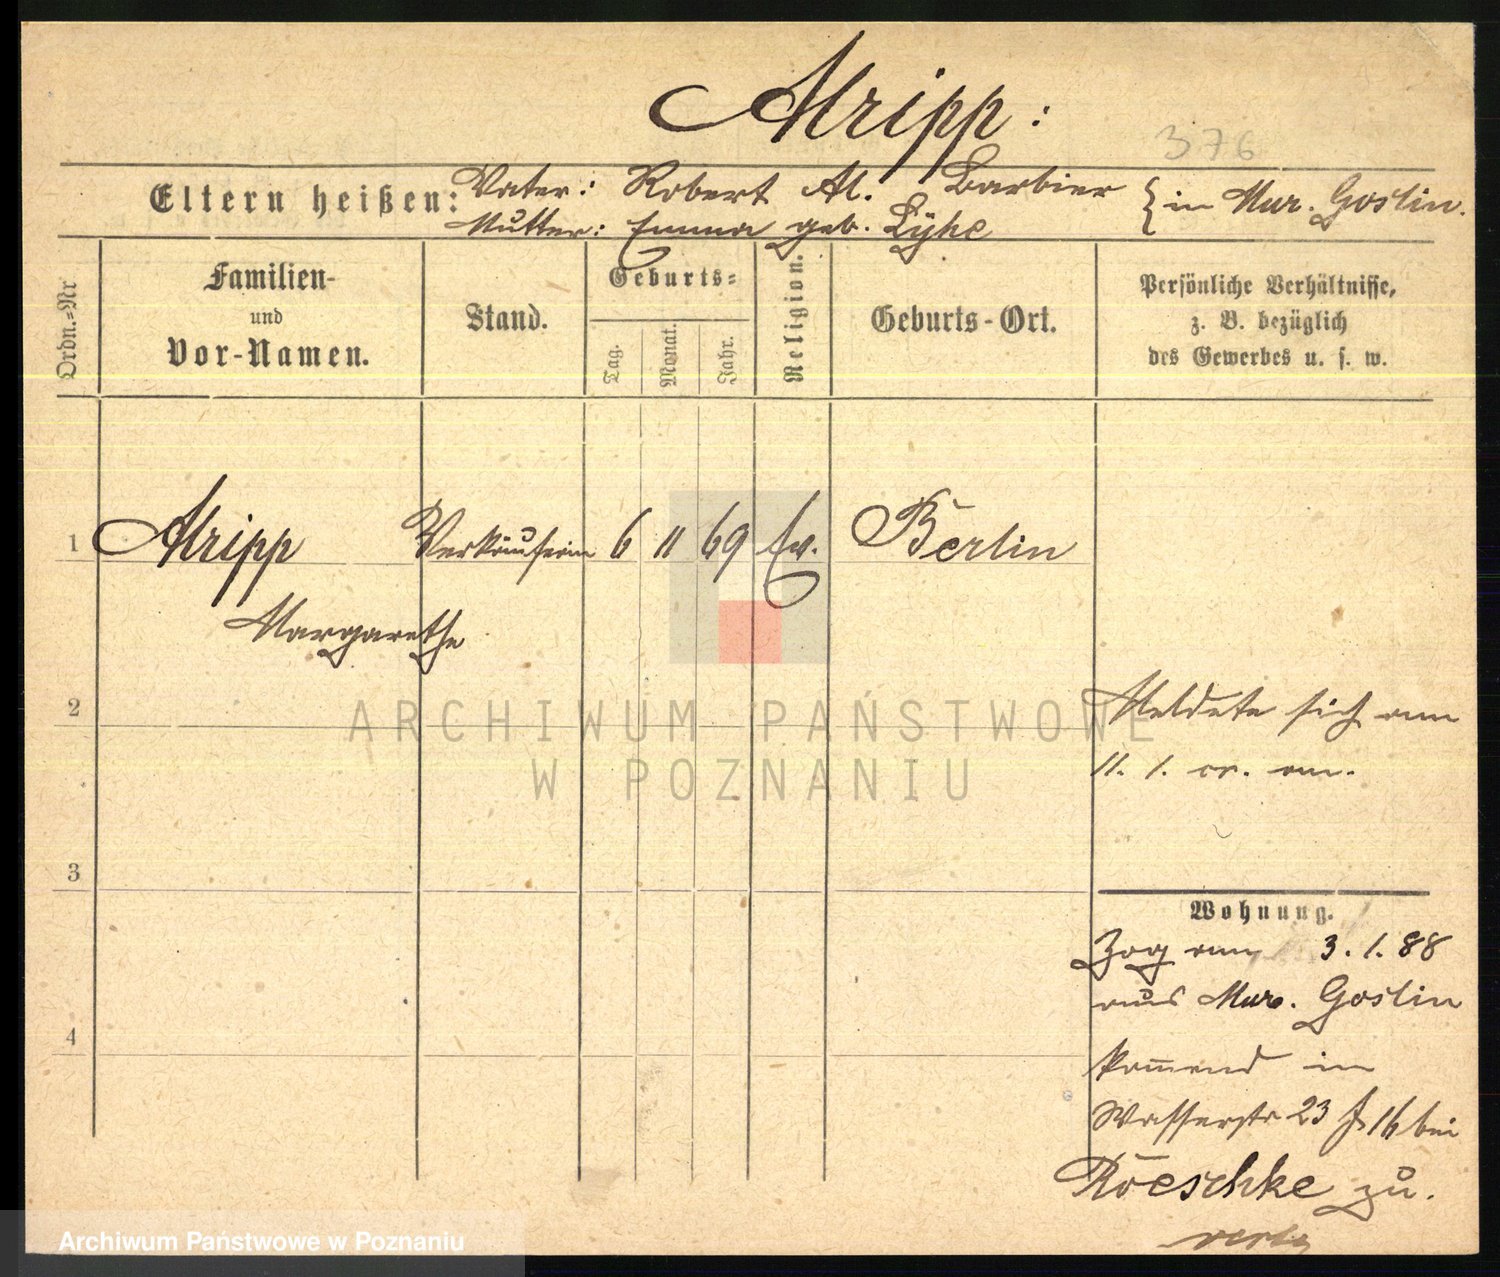 Alripp:
376
Eltern heißen: Vater: Robert Al. Barbier } in Mur. Goslin.
Mutter: Emma geb. Lÿhe
Ordn.=Nr
Familien-
und
Vor-Namen.
Stand.
Geburts=
Tag.
Monat.
Jahr.
Religion.
Geburts-Ort.
Persönliche Verhältnisse,
z. B. bezüglich
des Gewerbes u. s. w.
1 Alripp Verkäuferin 6 11 69 Ev. Berlin
Margarethe
2
Meldete sich am
11. 1. cr. an.
ARCHIWUM PAŃSTWOWE
W POZNANIU
3
Wohnung.
Zog am 3. 1. 88
aus Mur. Goslin
4
kom̅end in
Wasserstr 23 16 bei
Röeschke zu.
Archiwum Państwowe w Poznaniu